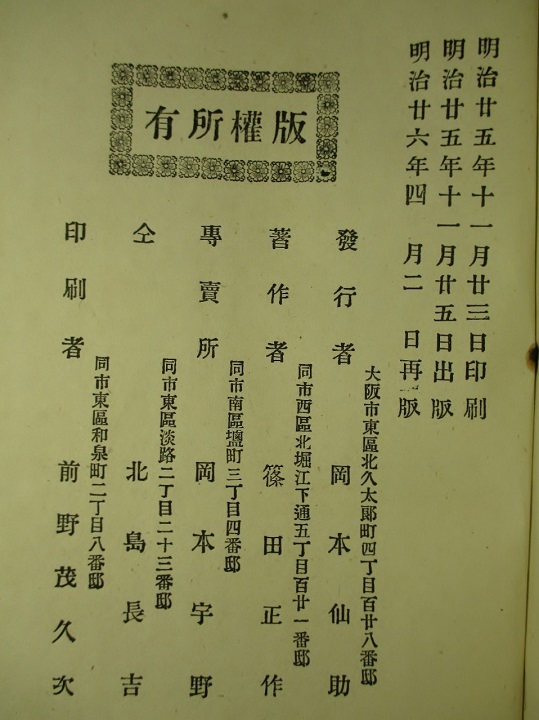 明治廿五年十一月廿三日印刷
明治廿五年十一月廿五日出版
明治廿六年四月二日再版
版權所有
大阪市東區北久太郎町四丁目百廿八番邸
發行者 岡本仙助
同市西區北堀江下通五丁目百廿一番邸
著作者 篠田正作
同市南區鹽町三丁目四番邸
專賣所 岡本宇野
同市東區淡路二丁目二十三番邸
仝 北島長吉
同市東區和泉町二丁目八番邸
印刷者 前野茂久次